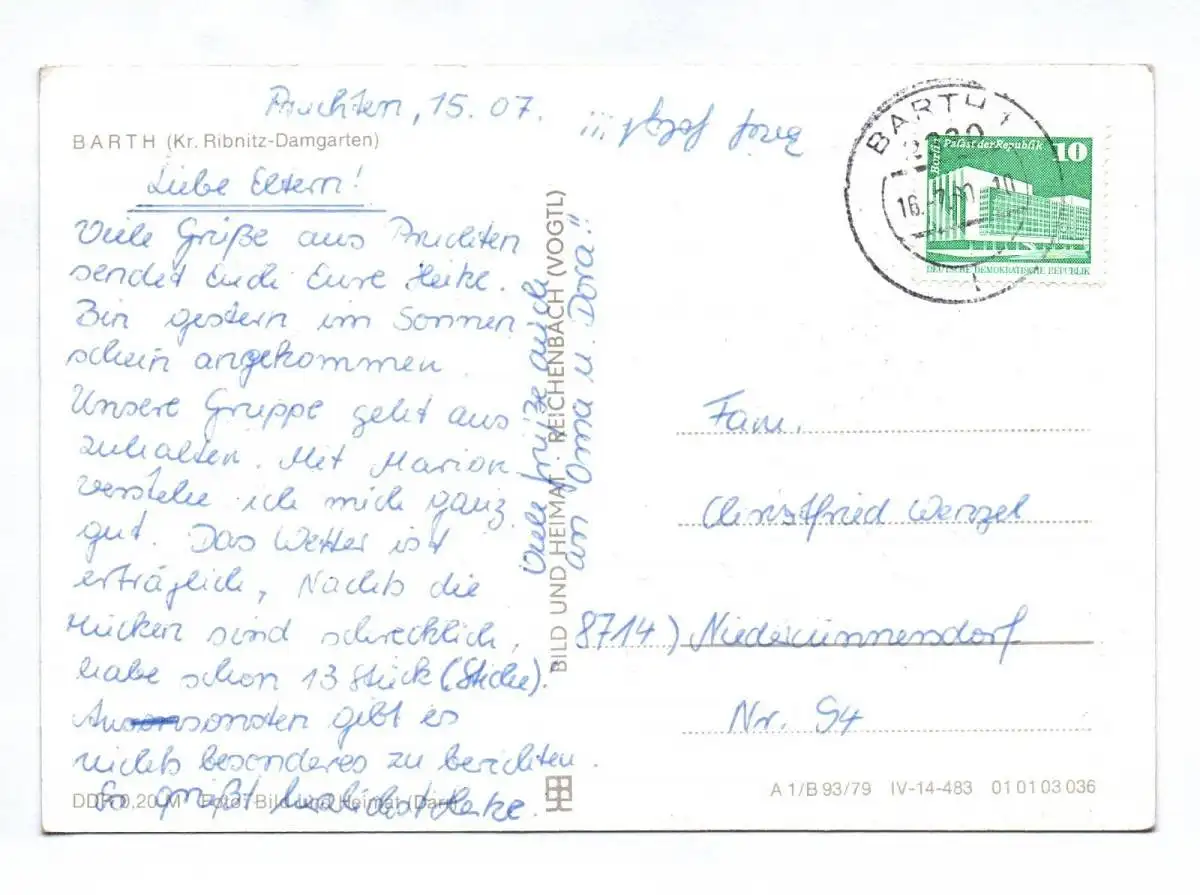 Pruchten, 15.07.
BARTH (Kr. Ribnitz-Damgarten)
Liebe Eltern!
Viele Grüße aus Pruchten
sendet Euch Eure Heike.
Bin gestern im Sonnen
schein angekommen
Unsere Gruppe geht aus
zuhalten. Mit Marion
verstehe ich mich ganz
gut. Das Wetter ist
erträglich, Nachts die
Mücken sind schrecklich,
habe schon 13 Stück (Stiche).
Ansonsten gibt es
nichts besonderes zu berichten.
So grüßt Heike.
DDR 0,20 M Foto: Bild und Heimat (Darr)
Viele Grüße auch
an Oma u. Dora!!
BILD UND HEIMAT REICHENBACH (VOGTL)
BARTH 1
2380
16.-7.80.-10
Berlin Palast der Republik 10
DEUTSCHE DEMOKRATISCHE REPUBLIK
Fam.
Christfried Wenzel
8714) Niedercunnersdorf
Nr. 94
A 1/B 93/79 IV-14-483 01 01 03 036